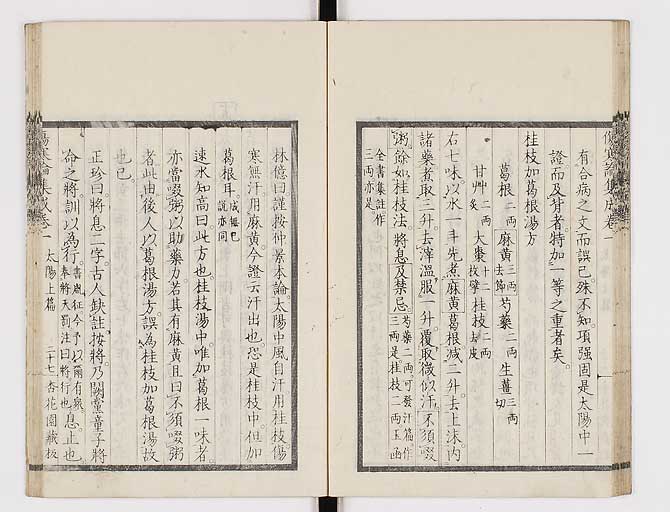 傷寒論集成卷一
有合病之文而誤已殊不知項強固是太陽中一
證而及背者特加一等之重者矣
桂枝加葛根湯方
葛根二兩麻黃三兩去節芍藥二兩生薑三兩切
甘艸二兩炙大棗十二枚擘桂枝二兩去皮
右七味以水一斗先煮麻黃葛根減二升去上沫內
諸藥煮取三升去滓溫服一升覆取微似汗不須啜
粥餘如桂枝法將息及禁忌芍藥二兩可發汗篇作三兩是桂枝二兩玉函
全書集註作三兩亦是
林億曰謹按仲景本論太陽中風自汗用桂枝傷
寒無汗用麻黃今證云汗出也恐是桂枝中但加
葛根耳成無已說亦同
速水知高曰此方也桂枝湯中唯加葛根一味者
亦當啜粥以助藥力若其有麻黃且曰不須啜粥
者此由後人以葛根湯方誤為桂枝加葛根湯故
也已
正珍曰將息二字古人缺註按將乃闕黨童子將
命之將訓以為行書胤征今予以爾有衆奉將天罰注曰將行也息止也
傷寒論集成卷一 太陽上篇 二十七 杏花園藏板